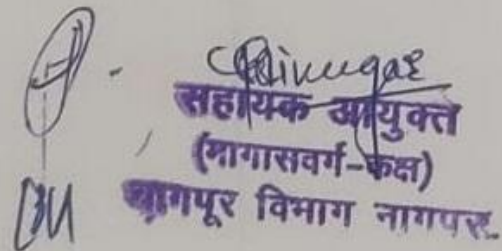 सहायक आयुक्त
(मागासवर्ग-कक्ष)
नागपूर विभाग नागपूर